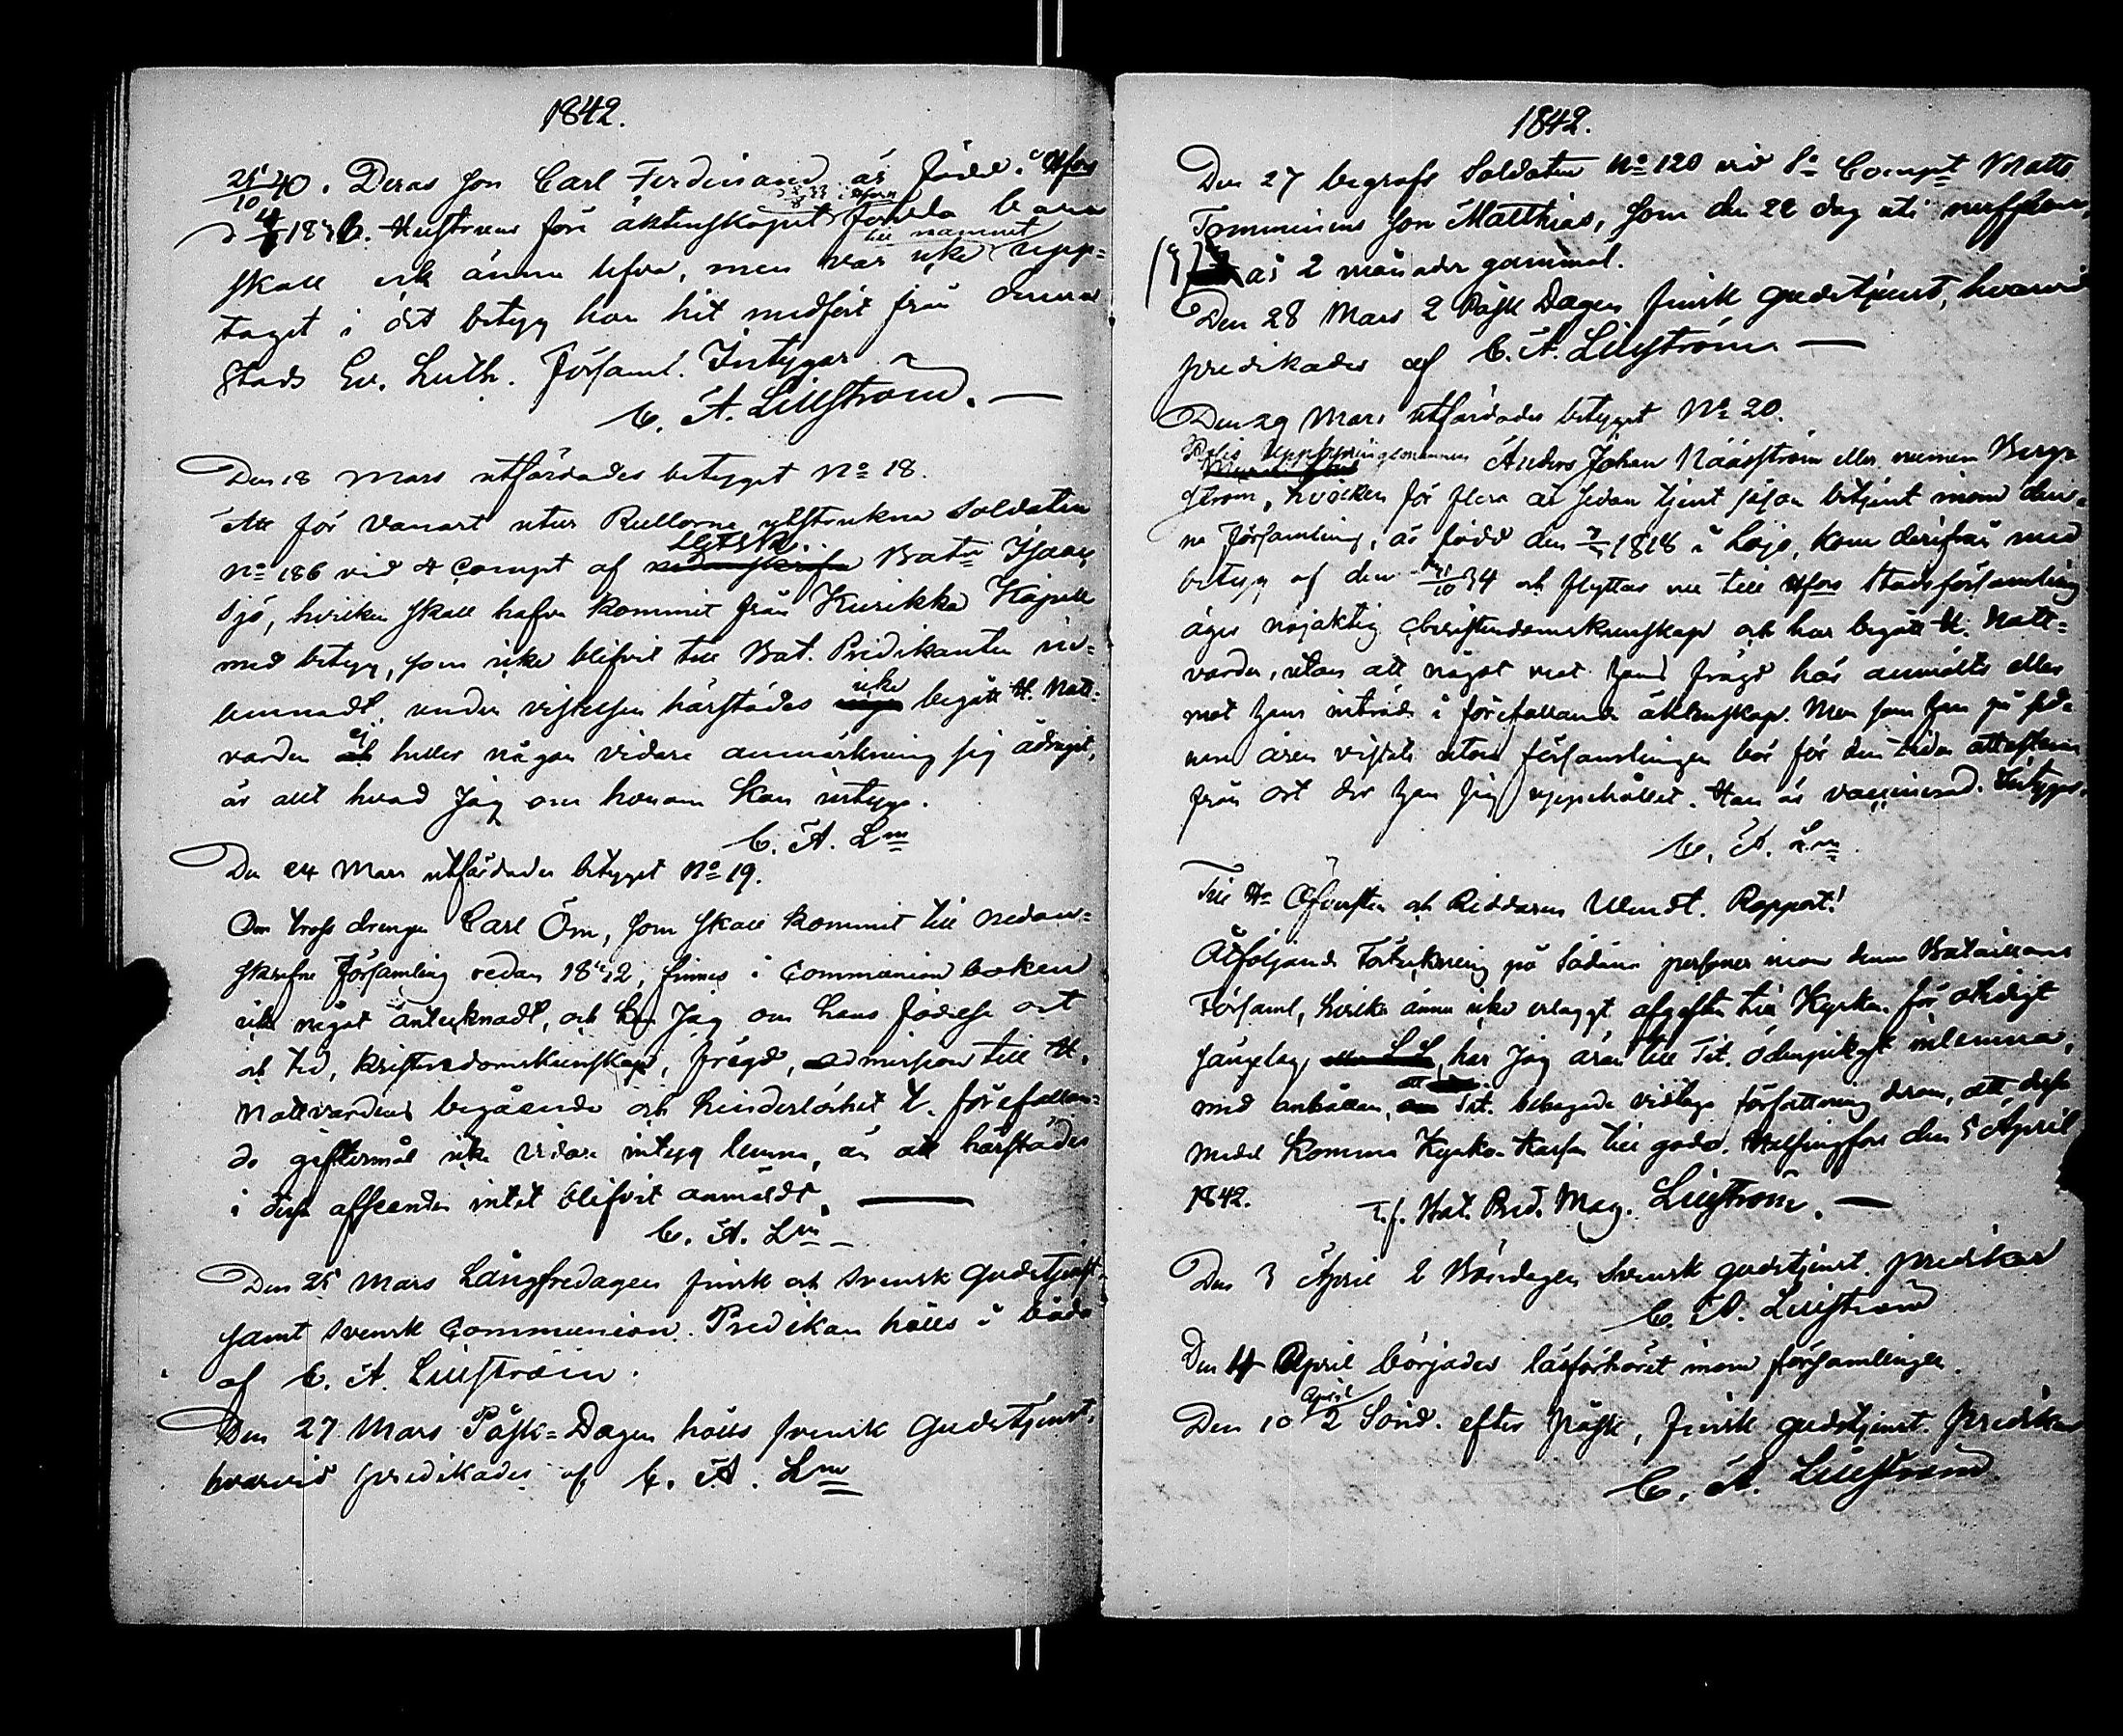 1842.
25/10 40. Deras son Carl Ferdinand är född i Hfors
d 4/ 18 6. Hustruns före äktenskapet födda barn
till namnet
skall ock ännu lefva, men var icke upp-
taget i det betyg hon hit medfört från denna
Stads Ev. Luth. Församl. Intygar
C. A. Lillström. —
Den 18 Mars utfärdades betyget No 18.
Att för vanart utur Rullorna utstrukna Soldaten
No 186 vid 4 Compt af nedanskrifne Batn Isaac
Sjö, hvilken skall hafva kommit från Kurikka Kapell
med betyg, som icke blifvit till Bat. Predikanten in-
lemnadt, under vistelsen härstädes icke begått H. Natt-
varden ej heller någon vidare anmärkning sig ådragit,
är allt hvad Jag om honom kan intyga.
C. A. Lm
Den 24 Mars utfärdades betyget No 19.
Om trossdrengen Carl Öm, som skall kommit till nedan-
skrefne Församling redan 1832, finnes i Communion boken
icke något antecknadt, och kan Jag om hans födelse ort
och tid, kristendomskunskap, frägd, admission till H.
Nattvardens begående och hinderlöshet t. förefallan-
de giftermål icke vidare intyg lemna, än att härstädes
i dessa afseenden intet blifvit anmäldt. —
C. A. Lm —
Den 25 Mars Långfredagen finsk och svensk Gudstjenst
samt svensk Communion. Predikan hölls i båda
af C. A. Lillström.
Den 27 Mars Påsk-Dagen hölls svensk Gudstjenst,
hvarvid predikades af C. A. Lm
1842.
Den 27 begrofs Soldaten No 120 vid Compt Matts
Tomminens son Matthias, som den 22 dog uti
2 månader gammal.
Den 28 Mars 2 Påsk Dagen finsk gudstjenst, hvarvid
predikades af C. A. Lillström —
Den 29 Mars utfärdades betyget No 20.
Uppsyningsmannen Anders Johan Nääsström eller numera Berg-
ström, hvilken för flera år sedan tjent såsom betjent inom den-
na församling, är född den 1818 i Lojo, kom derifrån med
betyg af den /10 34 och flyttar nu till Hfors Stadsförsamling
äger nöjaktig christendomskunskap och har begått H. Natt-
varden, utan att något mot hans frägd här anmälts eller
mot hans inträde i förefallande äktenskap. Men som han på sed-
nare åren vistats utom församlingen bör för den tiden attesteras
från ort der han sig uppehållit. Han är vaccinerad. Intygar.
C. A. Lm
Till Hr Öfversten och Riddaren Wendt. Rapport!
Åtföljande Förteckning på sådana personer inom denna Bataillons
Församl, hvilka ännu icke erlaggt afgiften till Kyrkan för otidigt
sängelag, har Jag äran till Tit. ödmjukast inlemna,
med anhållan, att Tit. behagade vidtaga författning derom, att dessa
medel komma Kyrko-Kassan till godo. Helsingfors den 5 April
1842. T. f. Bat. Pred. Mag. Lillström. —
Den 3 April 2 Böndagen Svensk gudstjenst. predikad
C. A. Lillström
Den 4 April börjades läsförhöret inom församlingen.
April
Den 10 2 Sönd. efter Påsk, finsk gudstjenst. predikan
C. A. Lillström